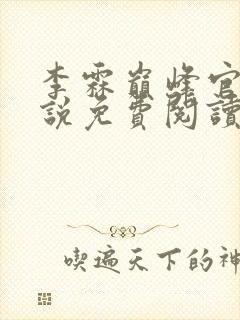 李霖巔峰官
說免費閱讀
喫遍天下的神